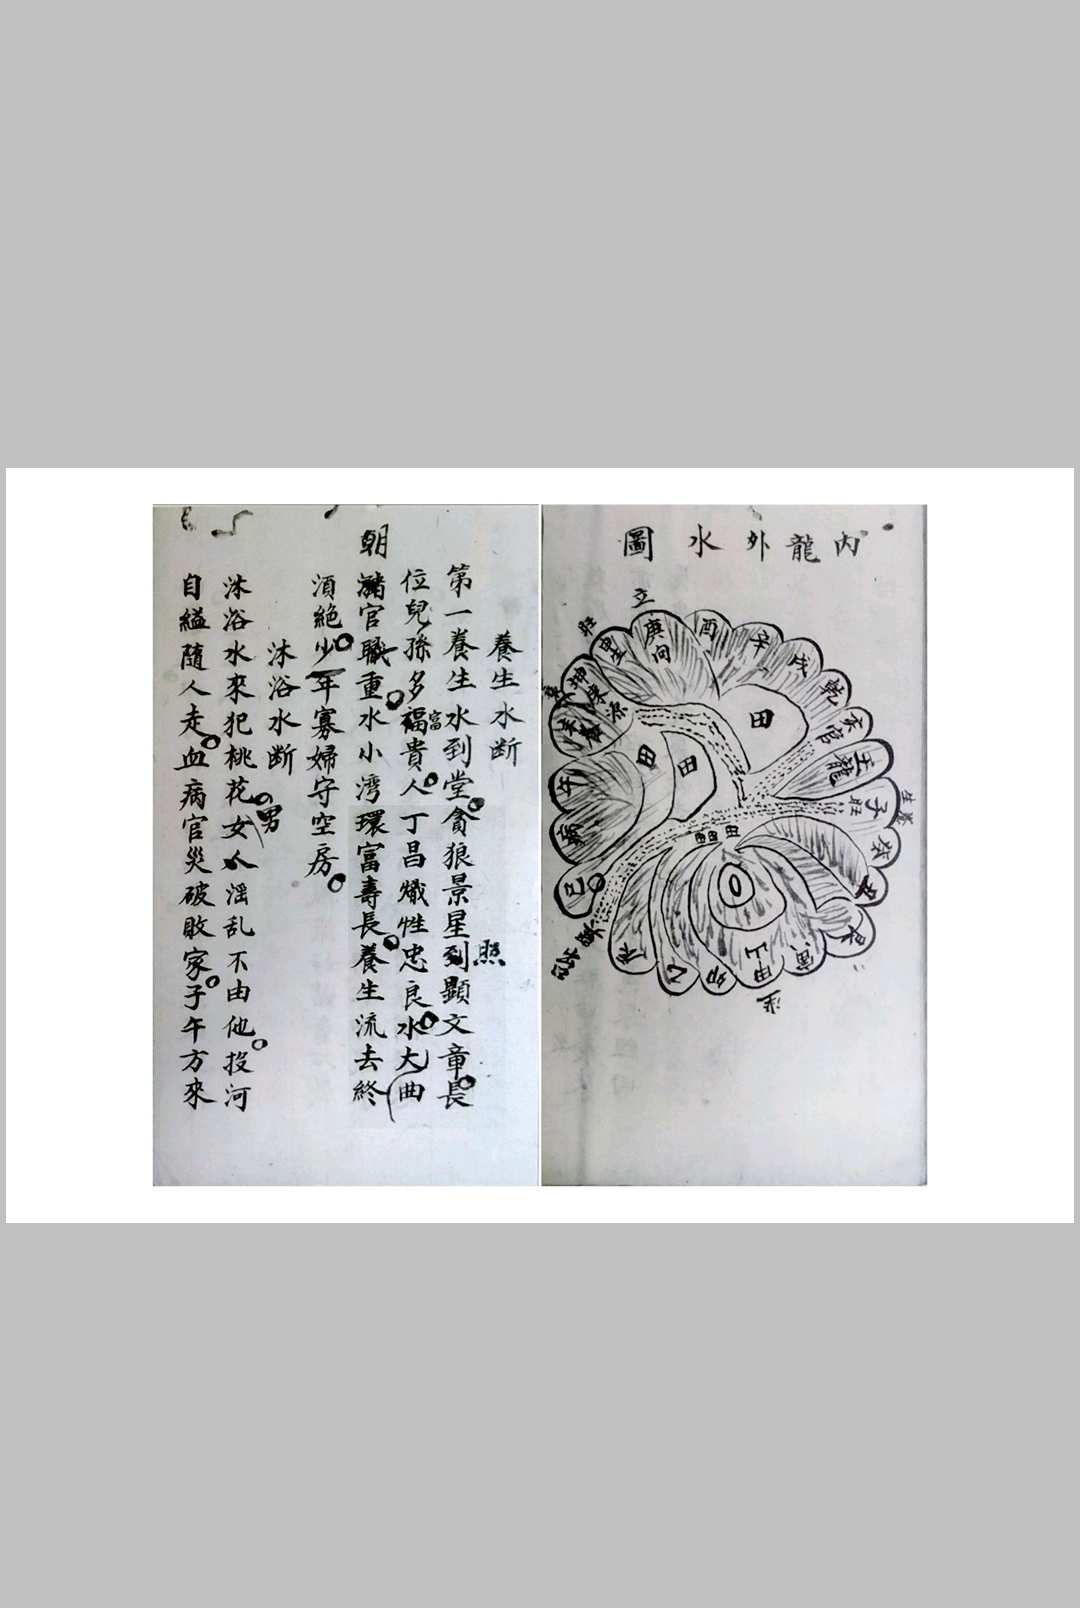 內龍外水圖
立
庚向
酉
辛
戌
乾
亥官
壬龍
子旺
癸
丑
艮
寅
甲山
卯
乙
辰
巳
病
午
坤
旺
田
田
田
田
養生水断
第一養生水到堂貪狼景星到顯文章長
照
位兒孫多福貴人丁昌熾性忠良水大曲
富
朝
瀦官職重水小湾環富壽長養生流去終
湏絶少年寡婦守空房
沐浴水断
沐浴水來犯桃花女人滛乱不由他投河
男
自縊隨人走血病官災破敗家子午方來